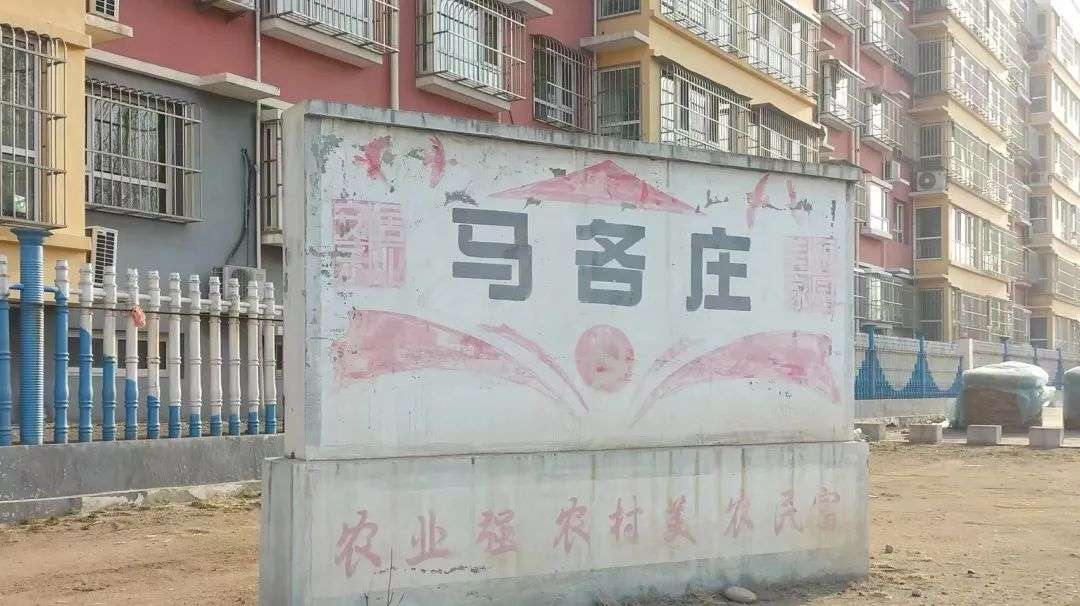 马各庄
农业强 农村美 农民富